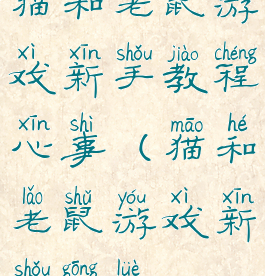 猫和老鼠游
xì xīn shǒu jiào chéng
戏新手教程
xīn shì māo hé
心事（猫和
lǎo shǔ yóu xì xīn
老鼠游戏新
shǒu gōng lüè